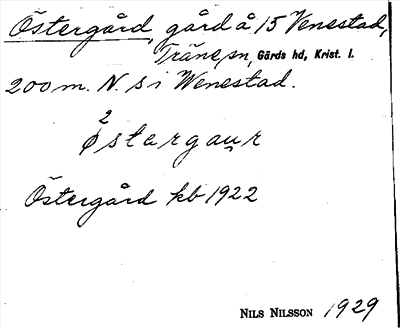 Östergård, gård å 15 Venestad,
Träne sn, Gärds hd, Krist. l.
200 m. N. s i Wenestad.
2
øs t e r g a u̯ r
Östergård kb 1922
NILS NILSSON 1929